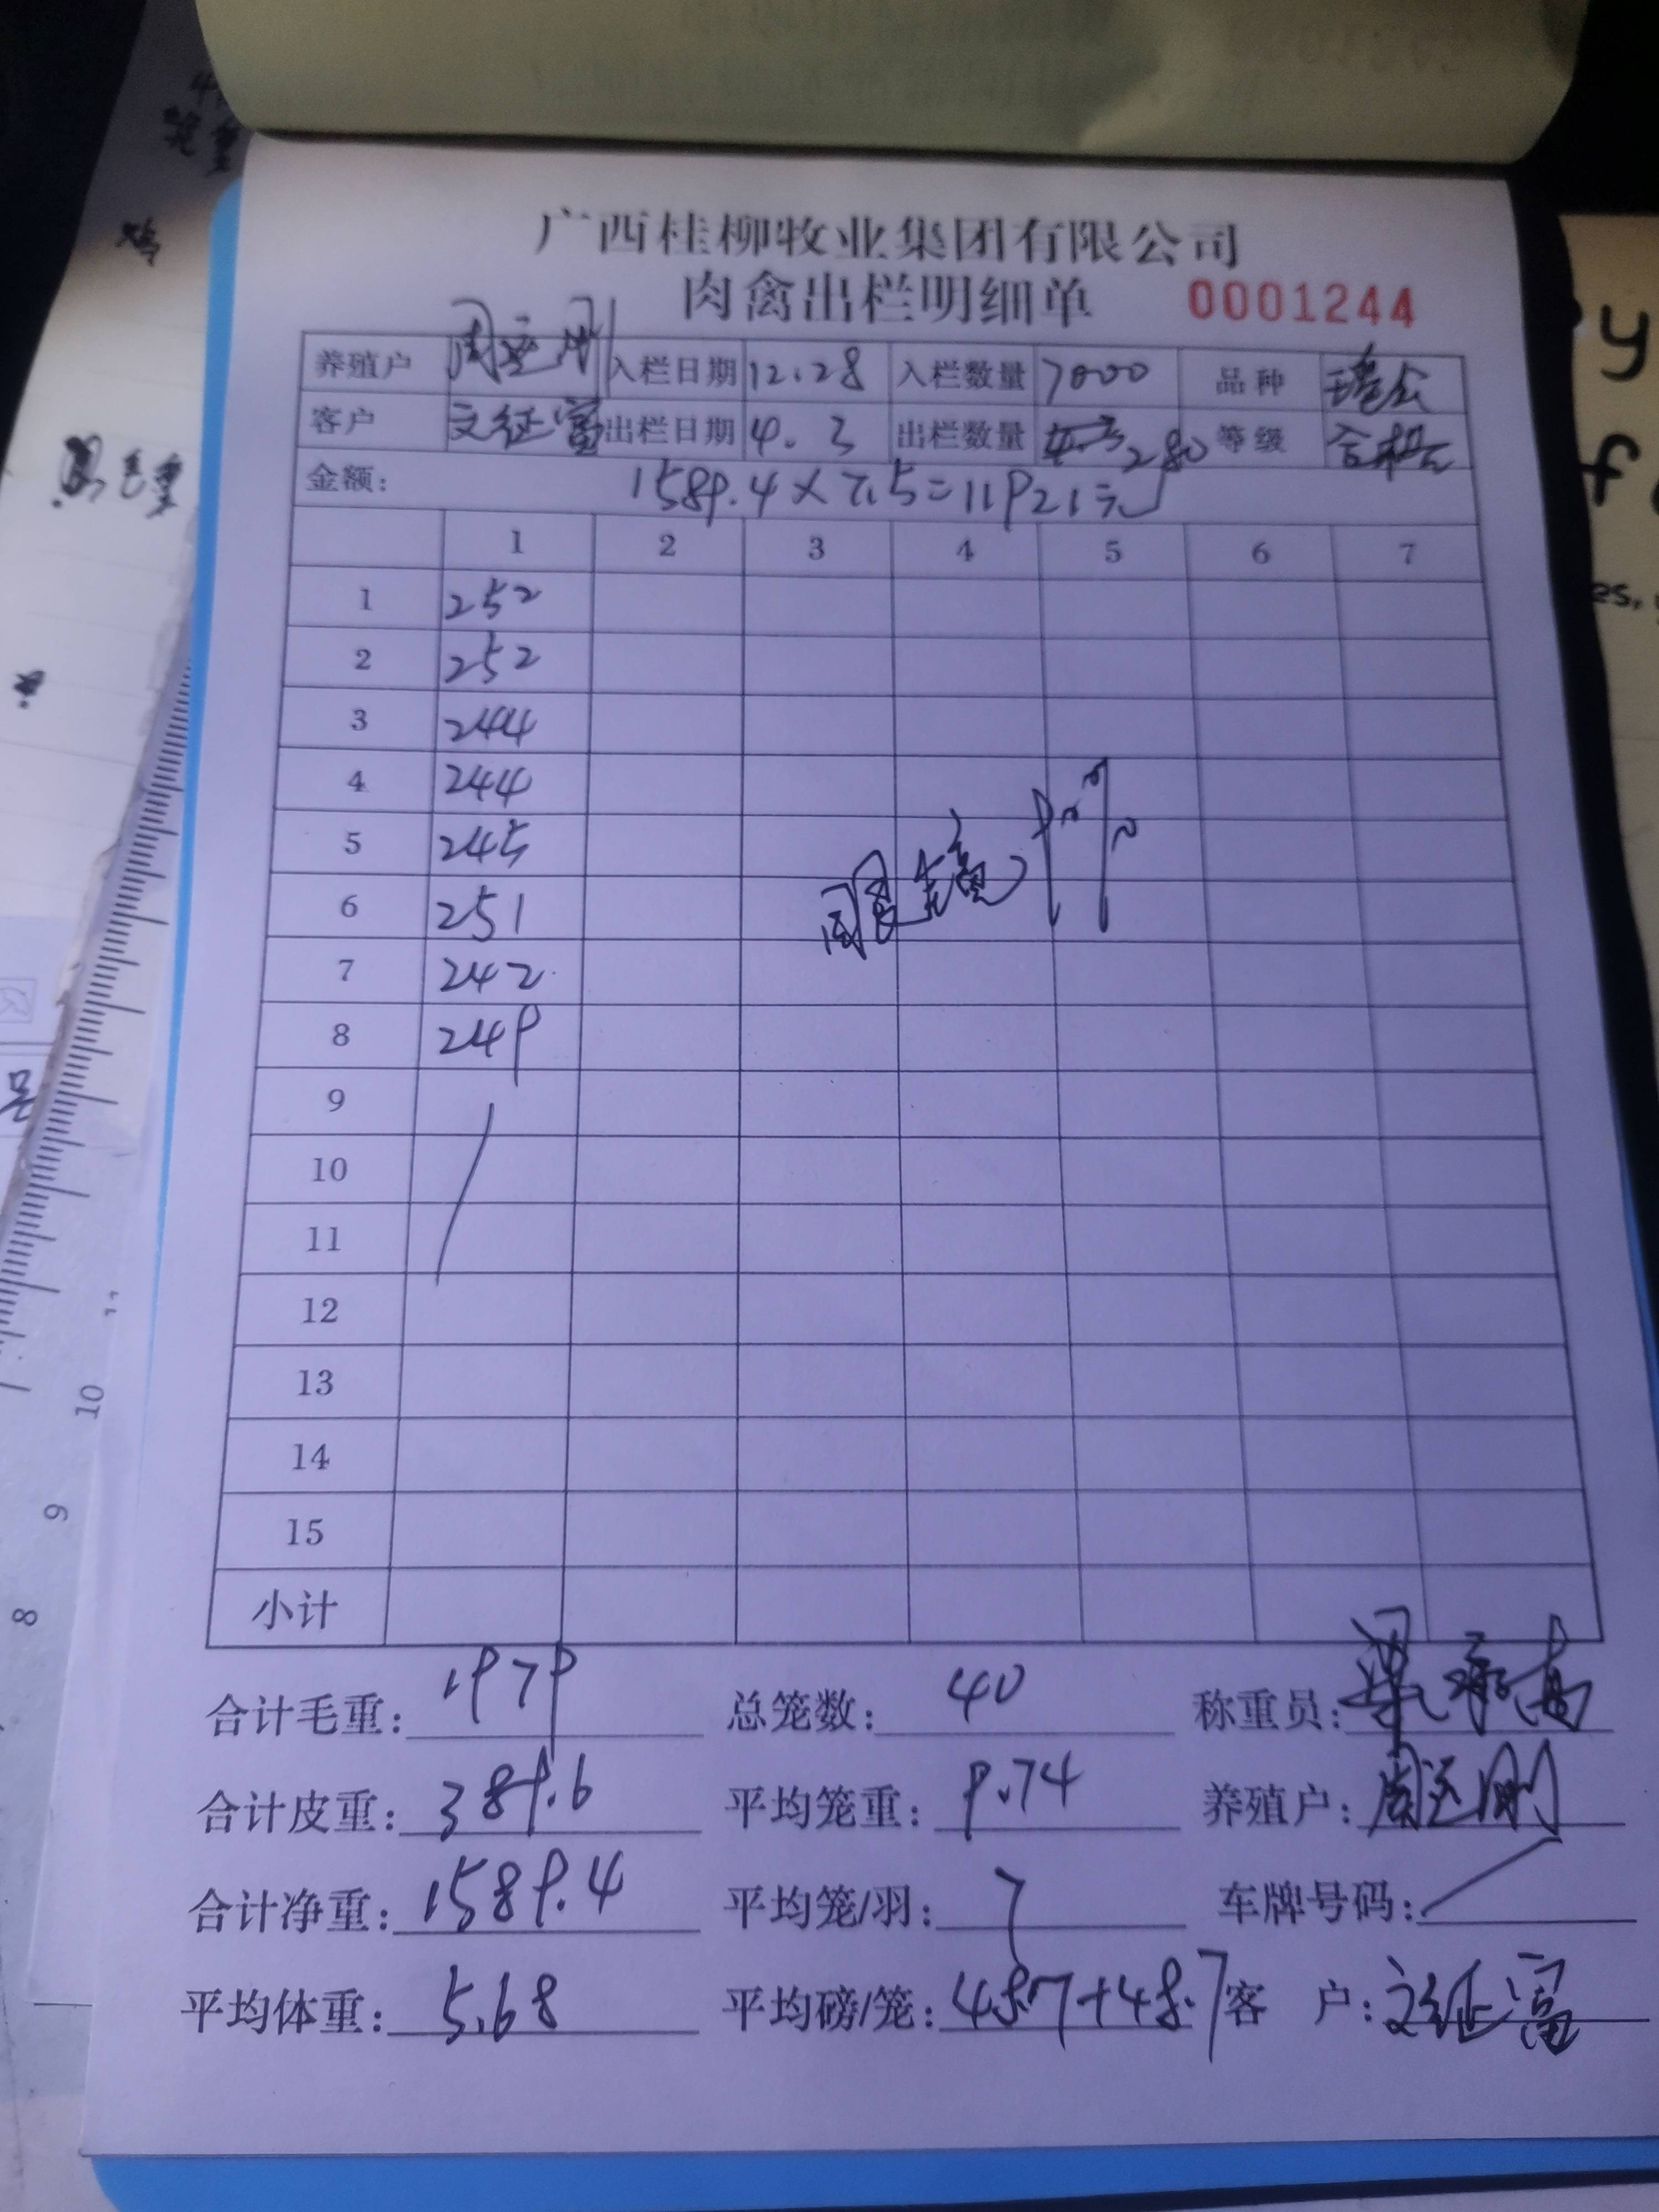 广西桂柳牧业集团有限公司
肉禽出栏明细单 0001244
养殖户 入栏日期 12.28 入栏数量 7000 品种
客户 文征富 出栏日期 4.3 出栏数量 280 等级
金额: 1589.4×7.5=11921元
1 2 3 4 5 6 7
1 252
2 252
3 244
4 244
5 245
6 251
7 242
8 249
9
10
11
12
13
14
15
小计
合计毛重: 1979 总笼数: 40 称重员:
合计皮重: 389.6 平均笼重: 9.74 养殖户:
合计净重: 1589.4 平均笼/羽: 7 车牌号码:
平均体重: 5.68 平均磅/笼: 48.7+48.7 客 户: 文征富
10
9
8